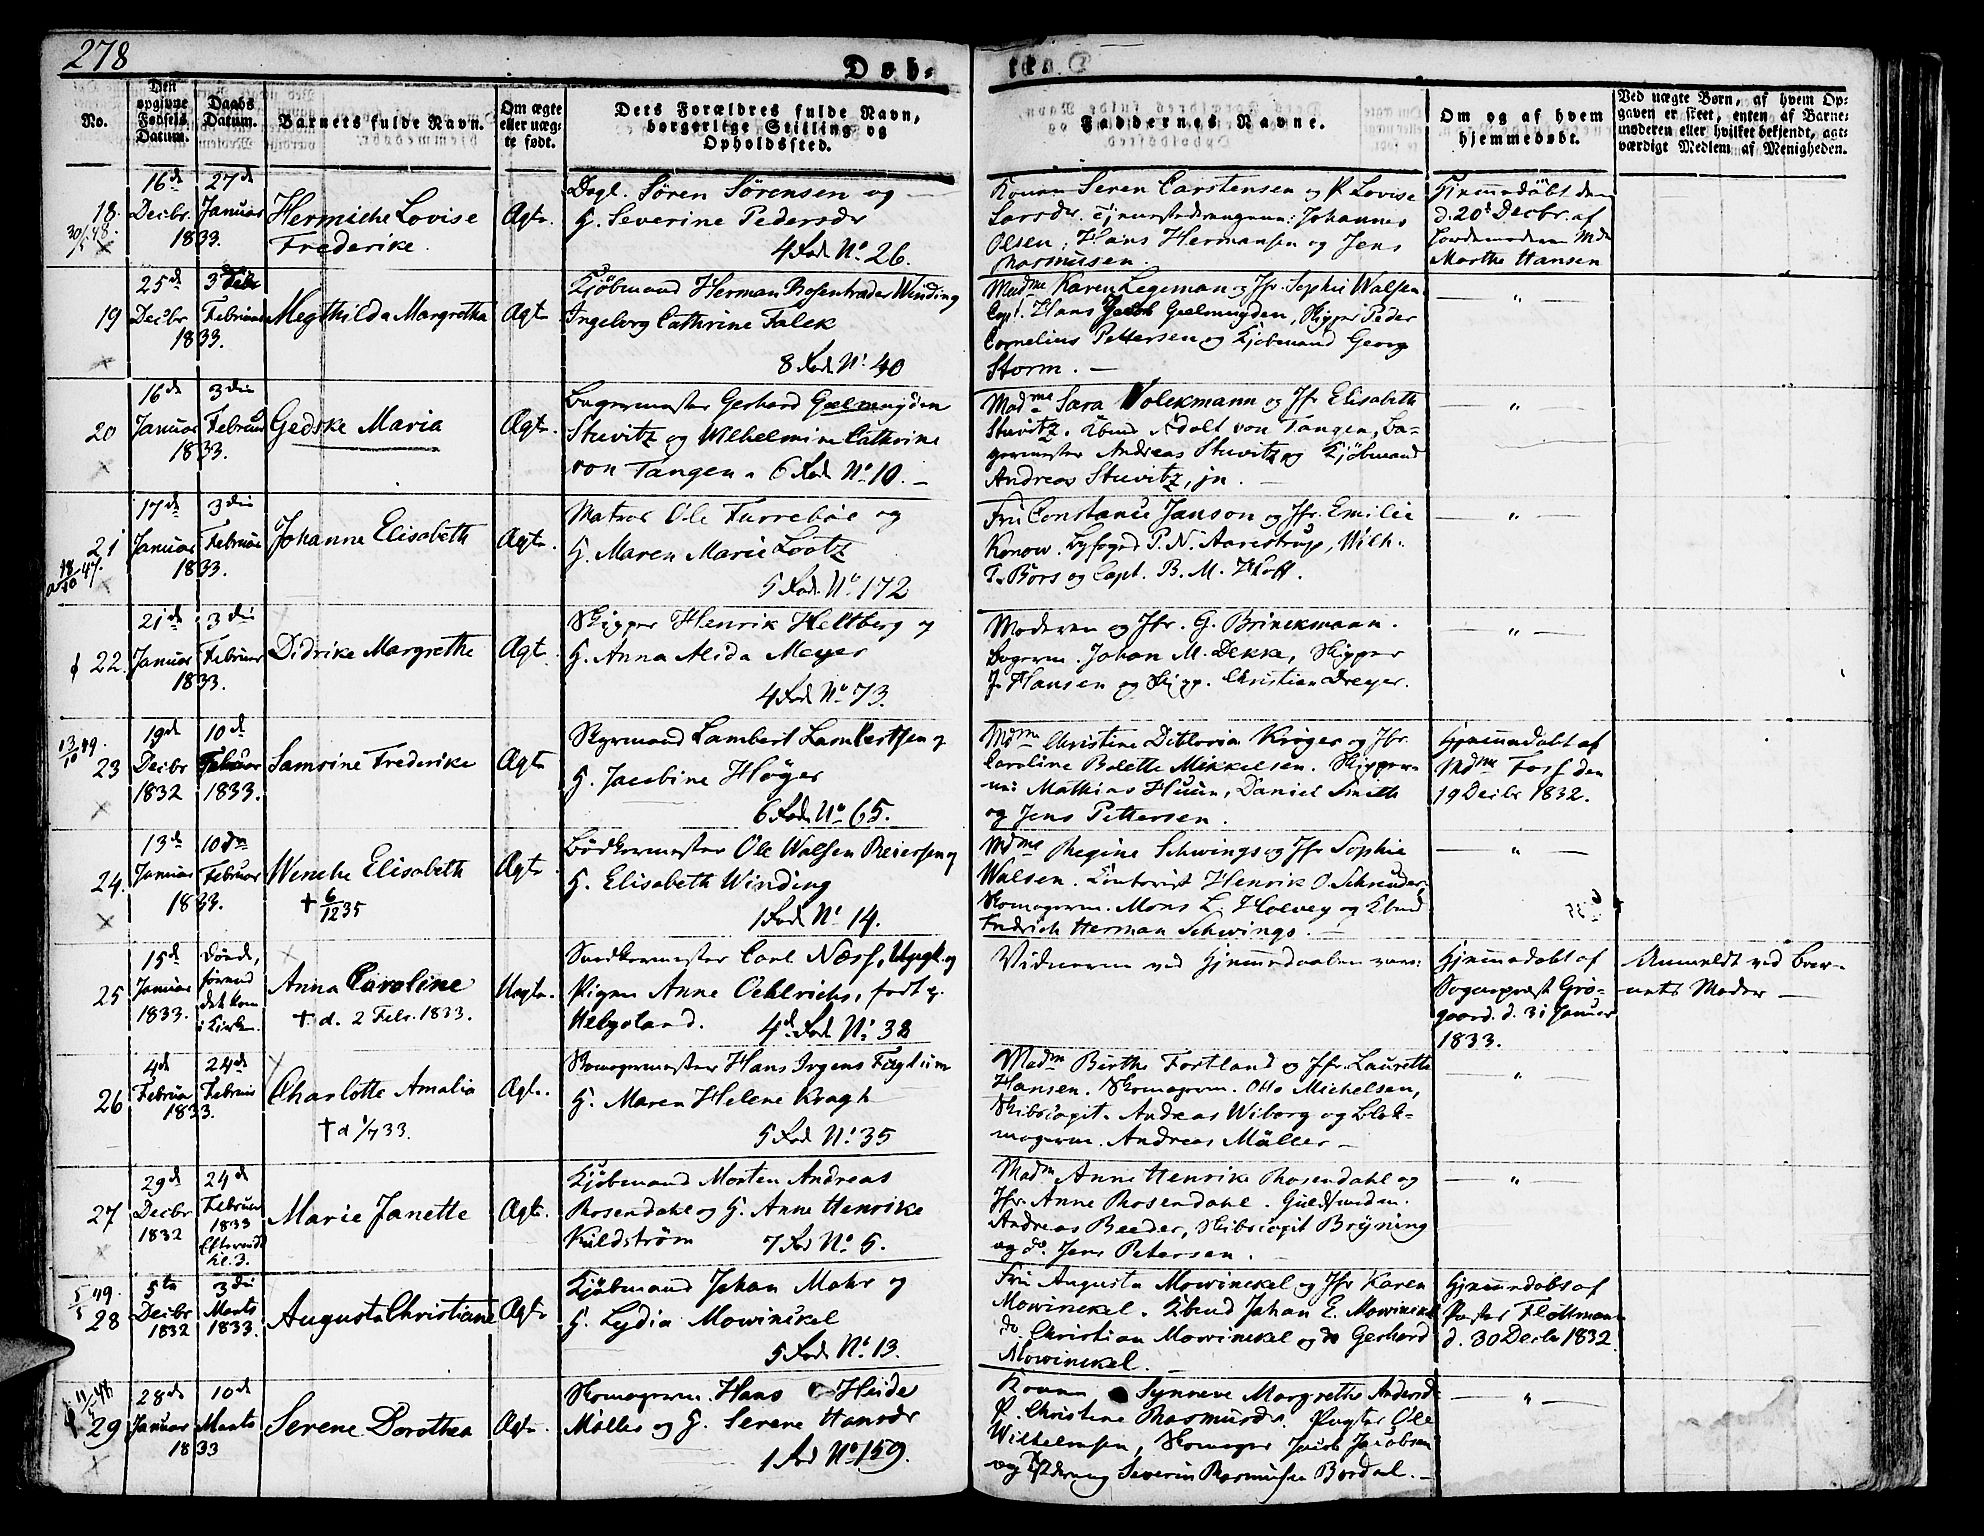 278
Døb-
te.
No.
Den opgivne Fødsels Datum.
Daabs Datum.
Barnets fulde Navn.
Om ægte eller uægte født.
Dets Forældres fulde Navn, borgerlige Stilling og Opholdssted.
Faddernes Navne.
Om og af hvem hjemmedøbt.
Ved uægte Børn, af hvem Opgaven er skeet, enten af Barnemoderen eller hvilket bekjendt, agtværdigt Medlem af Menigheden.
18.
16de Decbr. 1833.
27de Januar
Hermiche Lovise
Frederike.
Ægte.
Dagl. Søren Sørensen og
H. Severine Pedersdr
4 Rod. No. 26.
Konen Seren Carstensen og P. Lovise
Larsdr. Tjenestedrengene: Johannes
Olsen, Hans Hermansen og Jens
Rasmusen.
Hjemmedøbt den
d. 20de Decbr. af
Jordemoderen Mdm
Marthe Hansen
19
25de Decbr 1833.
3die Februar
Megthilda Margretha
Ægte
Kjøbmand Herman Rosentræder Winding
Ingeborg Cathrine Falck
8 Rod. No. 40
Madme Karen Legeman og Jfr. Sophie Walsen
Capt. Hans Jacob Geelmuyden, Skipper Peder
Cornelius Pettersen og Kjøbmand Georg
Storm. —
— " —
20
16de Januar 1833.
3die Februar
Gedske Maria
Ægte.
Bagermester Gerhard Geelmuyden
Stuvitz og Wilhelmine Cathrine
von Tangen. 6 Rod. No. 10. —
Madme Sara Volckmann og Jfr Elisabeth
Stuvitz. Kbmd Adolt von Tangen, Ba-
germester Andreas Stuvitz og Kjøbmand
Andreas Stuvitz, jn. —
"
21
17de Januar 1833.
3die Februar
Johanne Elisabeth
Ægte.
Matros Ole Furrebøe og
H. Maren Marie Lootz
5 Rod. No 172
Fru Constance Janson og Jfr. Emilie
Konow. Byfoged P. N. Aarestrup, Wilh.
T. Bors og Capt. B. M. Hoff.
— " —
22.
21de Januar 1833.
3die Februar
Didrike Margrethe
Ægte
Skipper Henrik Heltberg og
H. Anna Alida Meyer
4 Rod. No. 73.
Moderen og Jfr. G. Brinckmann.
Bagerm. Johan M. Dekke, Skipper
J. Hansen og Skipp. Christian Dreyer.
— " —
13/10 49.
23
19de Decbr 1832
10de Februar 1833.
Samsine Frederike
Ægte
Styrmand Lambert Lambertsen og
H. Jacobine Høyer
6 Rod. No. 65.
Mdme Christine Ditlovia Krøger og Jfr.
Caroline Bolette Mikkelsen. Skipper-
ne: Mathias Huun, Daniel Smith
og Jens Pettersen.
Hjemmedøbt af
Mdme Foss den
19 Decbr 1832.
24.
13de Januar 1833.
10de Februar
Wenche Elisabeth
† 6/12 35
Ægte.
Bødkermester Ole Walsen Reiersen og
H. Elisabeth Winding
1 Rod. No. 14.
Mdme Regine Schwings og Jfr Sophie
Walsen. Contorist Henrik O. Schreuder,
Skomagerm. Mons L. Holvey og Kbmd
Fredrich Herman Schwings. —
— " —
25
15de Januar 1833.
Døde, førend det kom i Kirken.
Anna Caroline
† d. 2 Febr. 1833.
Uægte.
Snedkermester Carl Næss, Ungk. og
Pigen Anne Oehlrichs, født p.
Helgoland. 4de Rod. No. 38
Vidnerne ved Hjemmedaaben vare:
Hjemmedøbt af
Sogneprest Grø-
gaard. d. 31 Januar
1833.
Anmeldt ved Bar-
nets Moder —
26
4de Februar 1833.
24de Februar
Charlotte Amalia
† d 1/7 33.
Ægte.
Skomagermester Hans Irgens Faglum
H. Maren Helene Kragh
5 Rod No. 35
Madme Birthe Fortland og Jfr. Laurette
Hansen. Skomagerm. Otto Michelsen,
Skibscapit. Andreas Wiborg og Blok-
magerm. Andreas Müller —
"
27
29de Decbr 1832
24de Februar 1833 Eftermidd. kl. 3.
Marie Janette
Ægte.
Kjøbmand Morten Andreas
Rosendahl og H. Anne Henrike
Kildstrøm 7 Rod No. 5.
Madme Anne Henrike Rosendahl og
Jfr. Anne Rosendahl. Guldsmedm.
Andreas Beeder, Skibscapit Brÿning
og do. Jens Petersen.
— " —
5/5 49.
28
5te Decbr 1832
3die Marts 1833.
Augusta Christiane
Ægte
Kjøbmand Johan Mohr og
H. Lydia Mowinckel
5 Rod. No. 13.
Fru Augusta Mowinckel og Jfr Karen
Mowinckel. Kbmd Johan E. Mowinckel
do Christian Mowinckel og do Gerhard
Mowinckel. —
Hjemmedøbt af
Pastor Flottmann
d. 30 Decbr 1832.
29
28de Januar 1833
10de Marts
Serene Dorothea
Ægte.
Skomagerm. Hans Heide
Møller og H. Serene Hansdr
1 Rod No. 159.
Konen Synneve Margrethe Andersd
P. Christine Rasmusdr. Pagter Ole
Wilhelmsen, Skomager Jacob Jacobsen
og Severin Rasmusen Bordal. —
— " —